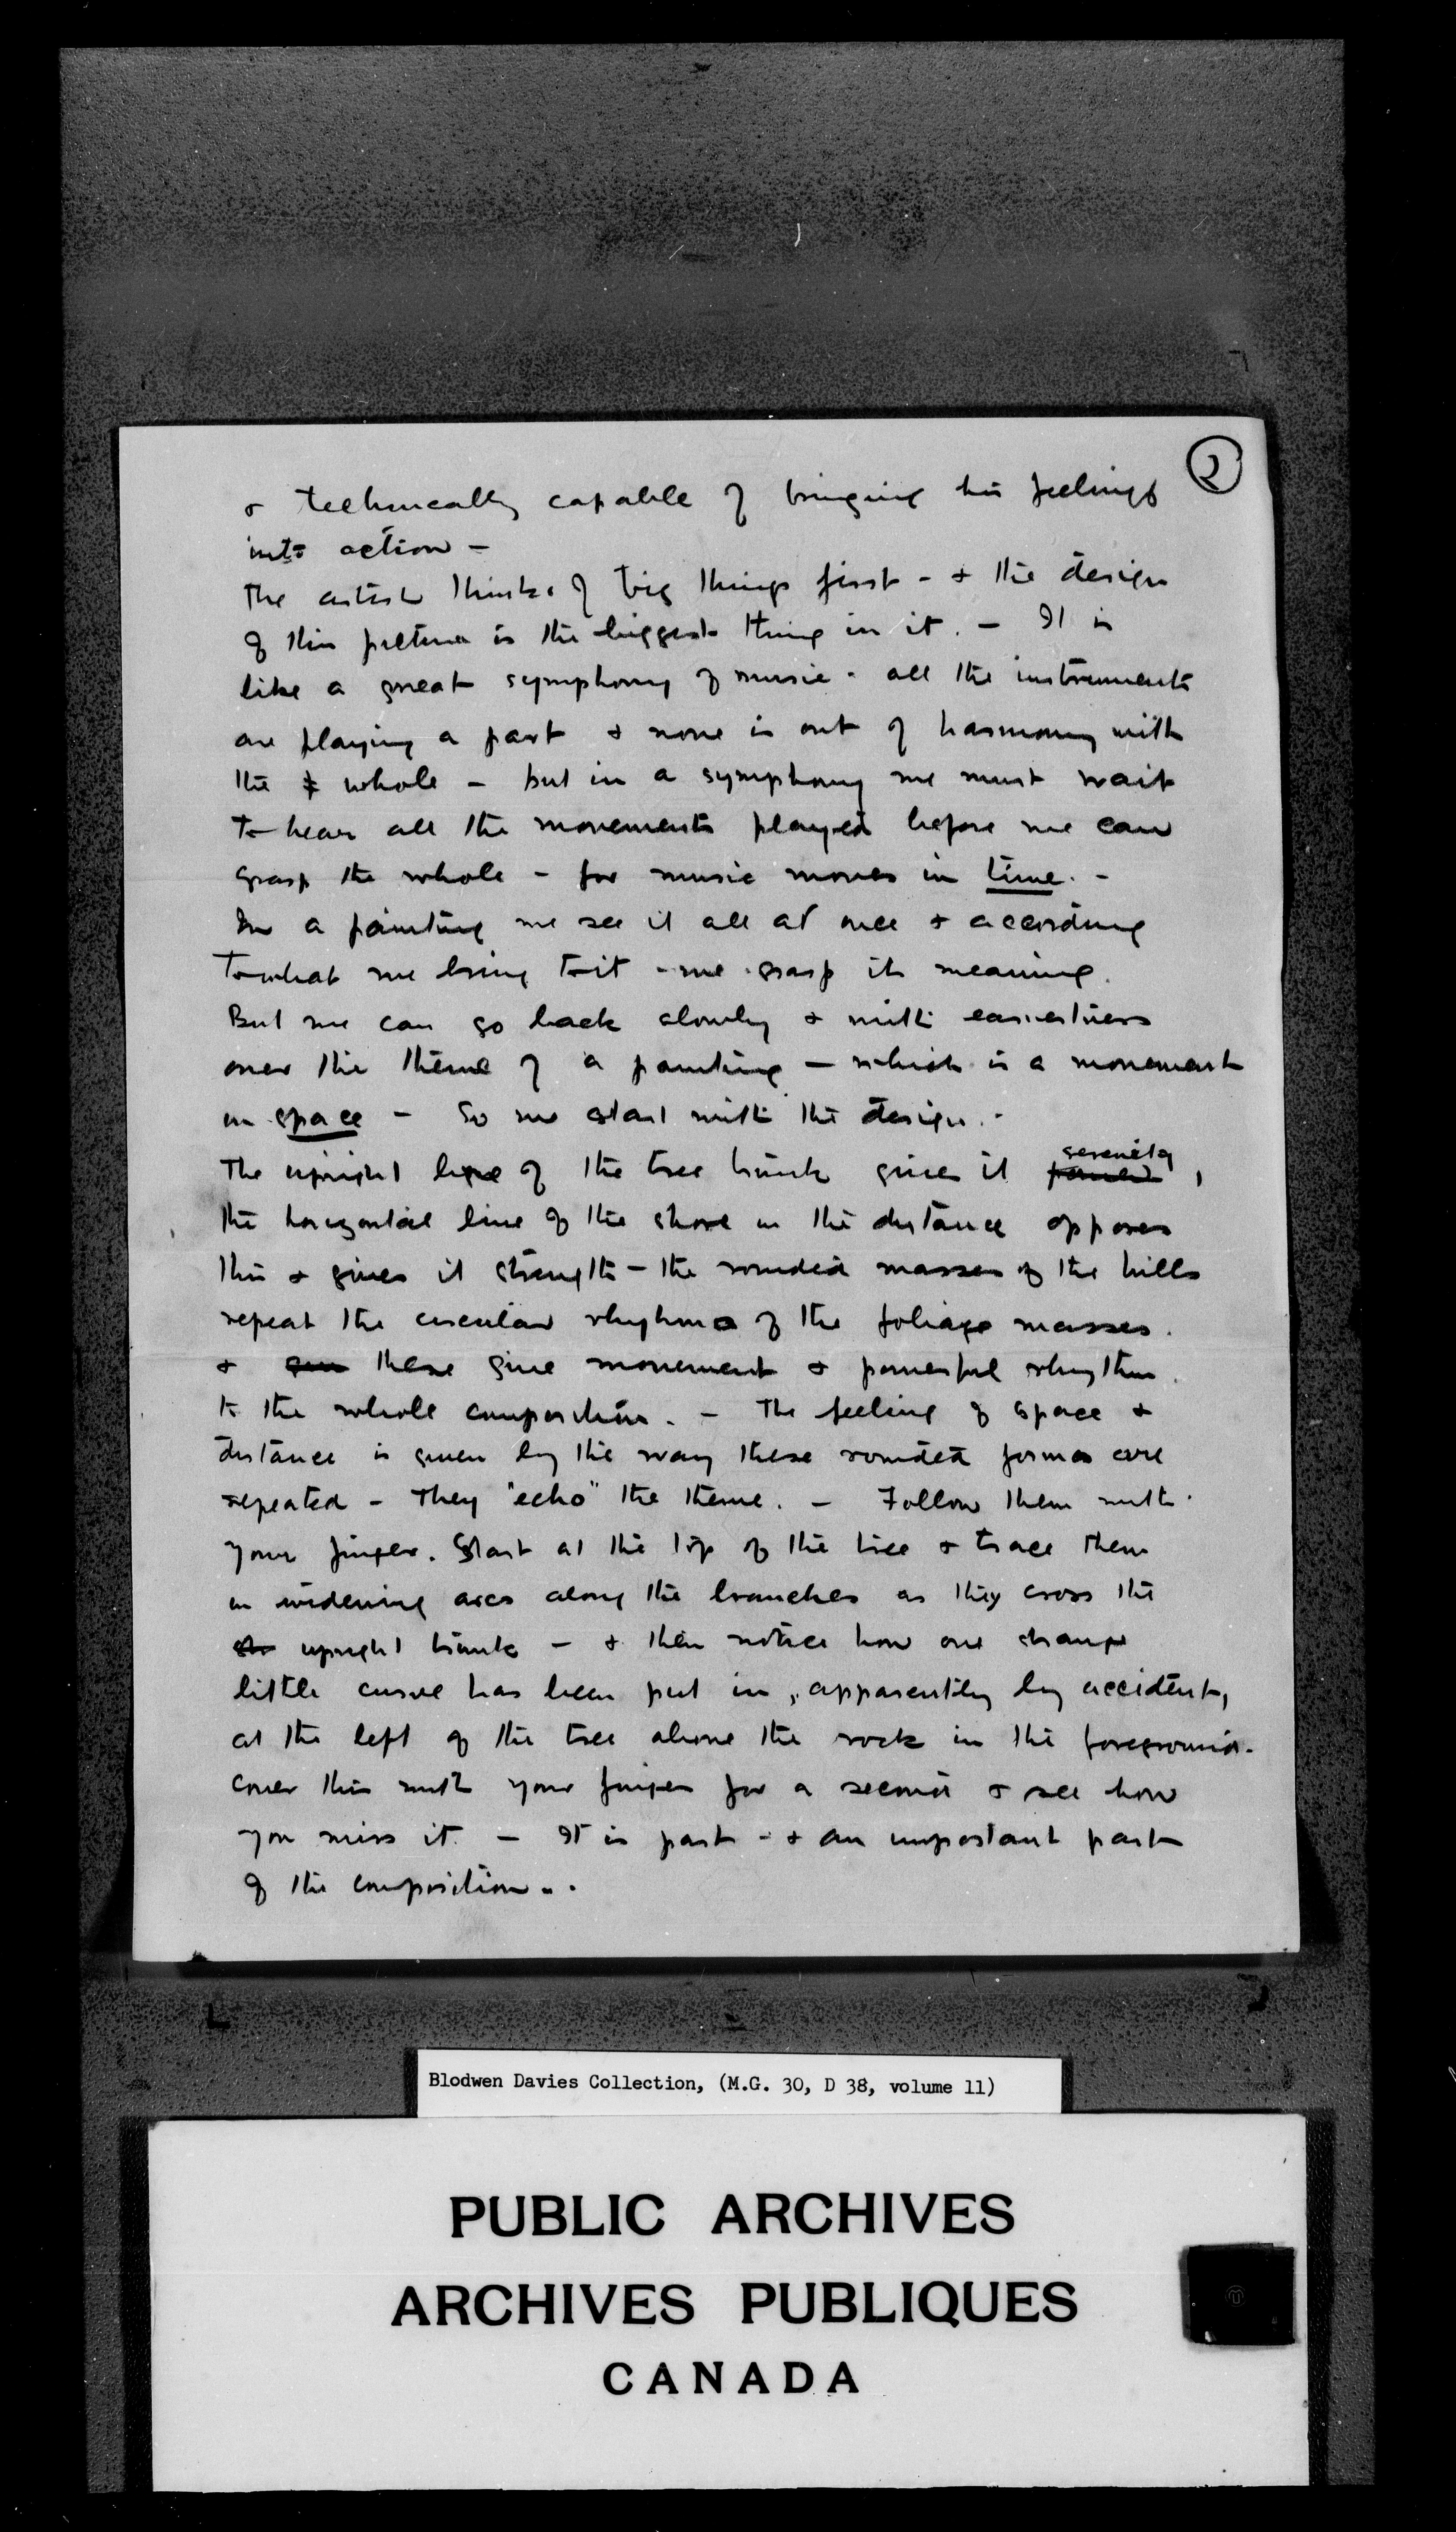 2
& technically capable of bringing his feelings
into action –
The artist thinks of big things first – & the design
of this picture is the biggest thing in it. – It is
like a great symphony of music - all the instruments
are playing a part & none is out of harmony with
the whole – but in a symphony we must wait
to hear all the movements played before we can
grasp the whole – for music moves in time. –
In a painting we see it all at once & according
to what we bring to it – we grasp its meaning.
But we can go back slowly & with earnestness
over the theme of a painting – which is a movement
in space – So we start with the design. -
serenity
The upright line of the tree trunk gives it power ,
the horizontal line of the shore in the distance opposes
this & gives it strength – the rounded masses of the hills
repeat the circular rhythms of the foliage masses.
& these give movement & powerful rhythm.
to the whole composition. – The feeling of space &
distance is given by the way these rounded forms are
repeated – They "echo" the theme. – Follow them with
your finger. Start at the top of the tree & trace them
in widening arcs along the branches as they cross the
upright trunk – & then notice how one strange
little curve has been put in, apparently by accident,
at the left of the tree above the rock in the foreground.
Cover this with your finger for a second & see how
you miss it. – It is part - & an important part
of the composition..
Blodwen Davies Collection, (M.G. 30, D 38, volume 11)
PUBLIC ARCHIVES
ARCHIVES PUBLIQUES
CANADA